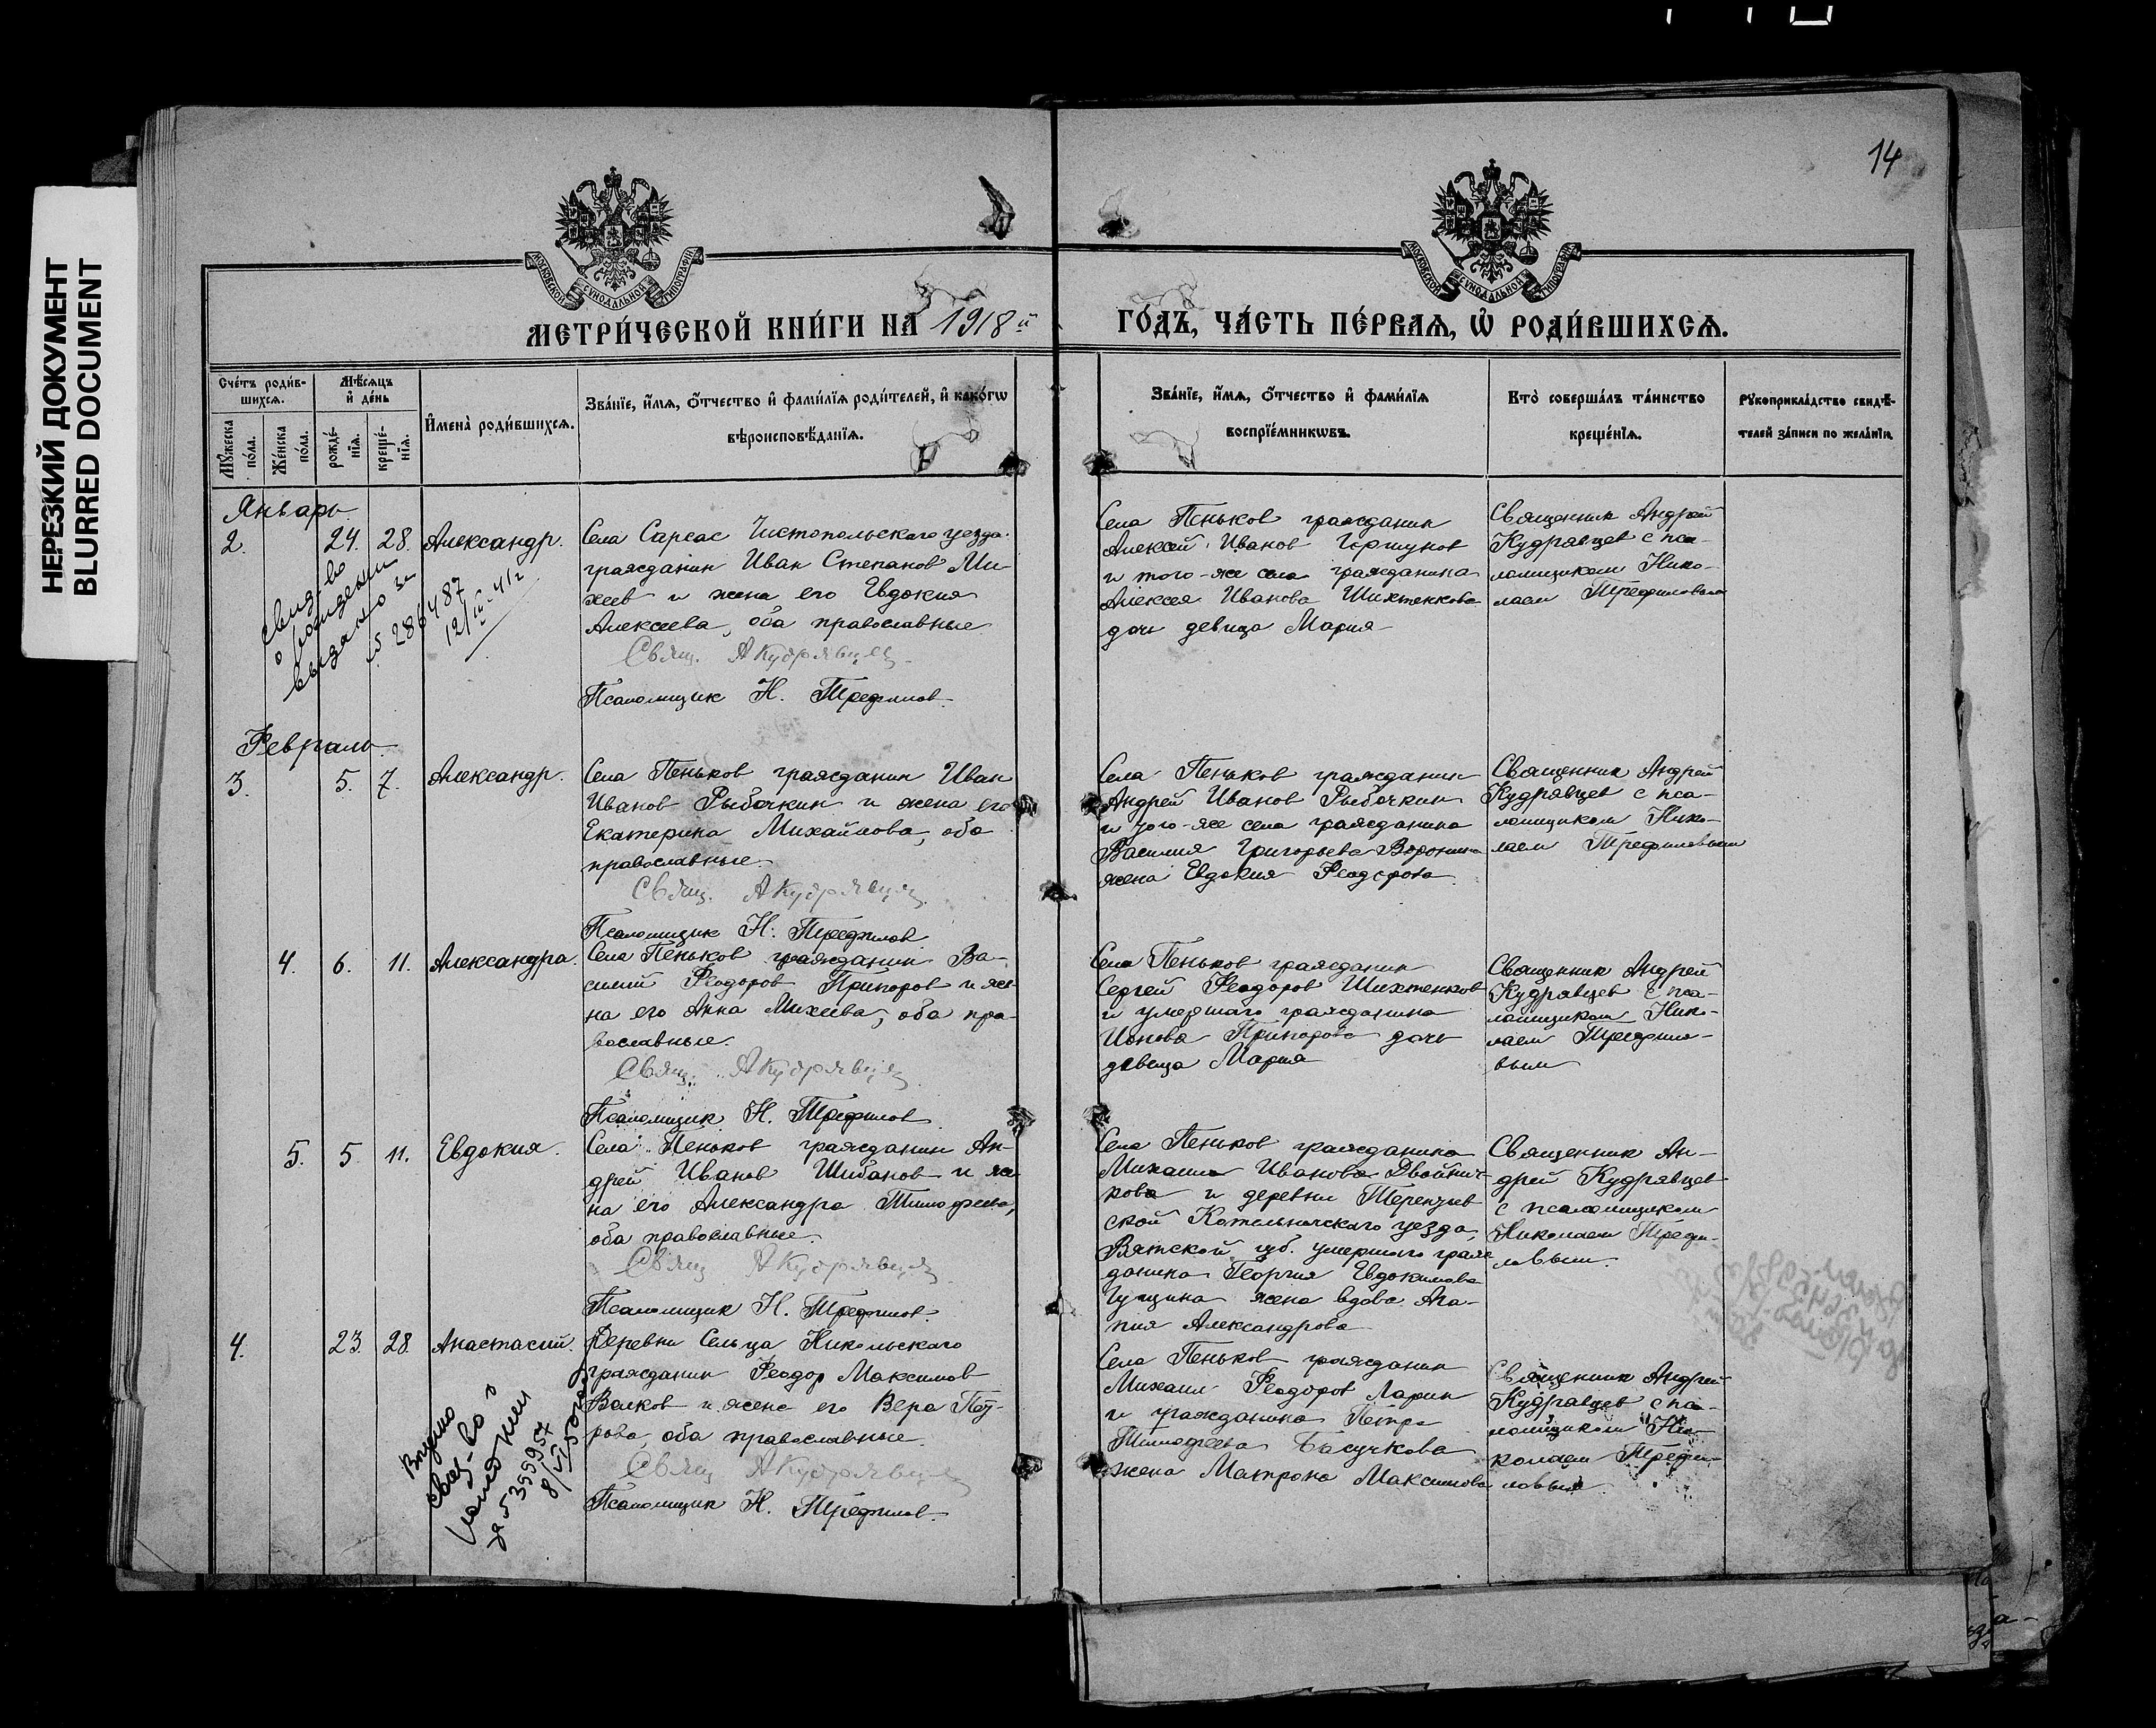 НЕРЕЗКИЙ ДОКУМЕНТ
BLURRED DOCUMENT
14
МОСКОВСКОЙ СѴНОДАЛЬНОЙ ТИПОГРАФІИ
МОСКОВСКОЙ СѴНОДАЛЬНОЙ ТИПОГРАФІИ
МЕТРИ́ЧЕСКОЙ КНИ́ГИ НА 1918й
ГО́ДЪ, ЧА́СТЬ ПЕ́РВАѦ, Ѡ҆ РОДИ́ВШИХСѦ.
Сче́тъ роди́в-
шихсѧ.
Мѣ́сѧцъ
и҆ де́нь
Мꙋ́жеска
по́ла.
Же́нска
по́ла.
рожде́-
нїѧ.
креще́-
нїѧ.
И҆мена̀ роди́вшихсѧ.
Зва́нїе, и҆́мѧ, ѻ҆́тчество и҆ фами́лїѧ роди́телей, и҆ како́гѡ
вѣроисповѣ́данїѧ.
Зва́нїе, и҆́мѧ, ѻ҆́тчество и҆ фами́лїѧ
воспрїе́мникѡвъ.
Кто̀ соверша́лъ та́инство
креще́нїѧ.
Рꙋкоприкла́дство свидѣ́-
телей за́писи по жела́нїи.
Январь.
2. 24. 28. Александр.
Села Сарсас Чистопольскаго уезда
гражданин Иван Степанов Ми-
хеев и жена его Евдокия
Алексеева, оба православные.
Свящ. А Кудрявцев.
Псаломщик Н. Трефилов.
свид-во
о рождении
выдано за
№ 286487
12/IV-41г
Села Пеньков гражданин
Алексей Иванов
и того-же села гражданина
Алексея Иванова Шихтенкова
дочь девица Мария
Священник Андрей
Кудрявцев с пса-
ломщиком Нико-
лаем Трефиловым
Февраль.
3. 5. 7. Александр.
Села Пеньков гражданин Иван
Иванов Рыбочкин и жена его
Екатерина Михайлова, оба
православные.
Свящ. А Кудрявцев.
Псаломщик Н. Трефилов
Села Пеньков гражданин
Андрей Иванов Рыбочкин
и того-же села гражданина
Василия Григорьева Воронина
жена Евдокия Феодорова.
Священник Андрей
Кудрявцев с пса-
ломщиком Нико-
лаем Трефиловым
4. 6. 11. Александра.
Села Пеньков гражданин Ва-
силий Феодоров Припоров и же-
на его Анна Михеева, оба пра-
вославные.
Свящ. А Кудрявцев
Псаломщик Н. Трефилов
Села Пеньков гражданин
Сергей Феодоров Шихтенков
и умершаго гражданина
Ионова Припорова дочь
девица Мария
Священник Андрей
Кудрявцев с пса-
ломщиком Нико-
лаем Трефило-
вым
5. 5. 11. Евдокия.
Села Пеньков гражданин Ан-
дрей Иванов Шибанов и же-
на его Александра Тимофеева,
оба православные.
Свящ А Кудрявцев
Псаломщик Н. Трефилов.
Села Пеньков гражданина
Михаила Иванова Двойни-
кова и деревни
ской Котельничскаго уезда,
Вятской губ. умершаго граж-
данина Георгия Евдокимова
Гущина жена вдова Ага-
пия Александрова
Священник Ан-
дрей Кудрявцев
с псаломщиком
Николаем Трефи-
ловым.
4. 23. 28 Анастасий.
Деревни Сельца Никольскаго
гражданин Феодор Максимов
Волков и жена его Вера Пет-
рова, оба православные.
Свящ А Кудрявцев
Псаломщик Н. Трефилов.
Выдано
свид-во о
рождении
за № 399957
8/VI
Села Пеньков гражданин
Михаил Феодоров Ларин
и гражданина Петра
Тимофеева Басучкова
жена Матрона Максимова
Священник Андрей
Кудрявцев с пса-
ломщиком Ни-
колаем Трефи-
ловым